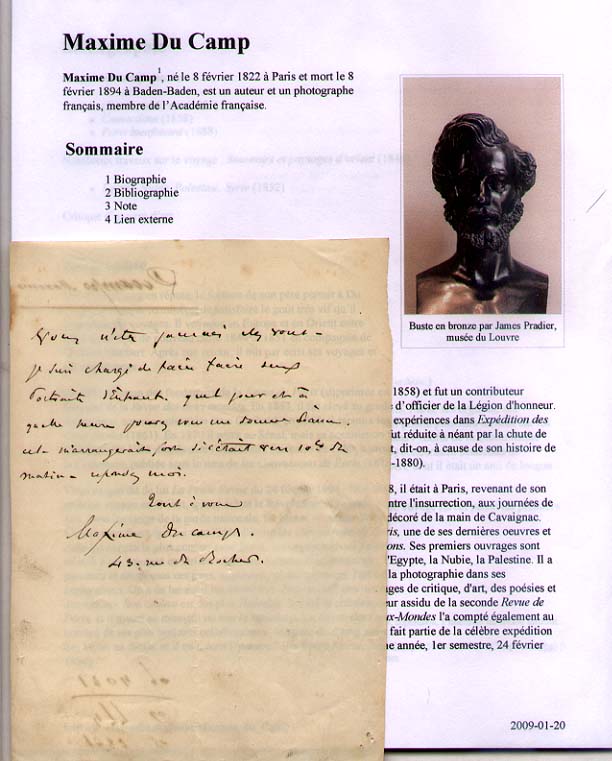 Maxime Du Camp
Maxime Du Camp¹, né le 8 février 1822 à Paris et mort le 8
février 1894 à Baden-Baden, est un auteur et un photographe
français, membre de l'Académie française.
Sommaire
1 Biographie
2 Bibliographie
3 Note
4 Lien externe
Buste en bronze par James Pradier,
musée du Louvre
Vous n'êtes jamais chez vous –
je suis chargé de faire faire deux
Portraits d'Enfants. quel jour et à
quelle heure pouvez vous me donner
cela m'arrangerait fort si c'était vers 10h du
matin – répondez moi.
Tout à vous
Maxime Du camp.
43. rue du Rocher.
1858) et fut un contributeur
d'officier de la Légion d'honneur.
expériences dans Expédition des
ut réduite à néant par la chute de
t, dit-on, à cause de son histoire de
-1880).
8, il était à Paris, revenant de son
ntre l'insurrection, aux journées de
décoré de la main de Cavaignac.
ris, une de ses dernières oeuvres et
ons. Ses premiers ouvrages sont
l'Egypte, la Nubie, la Palestine. Il a
la photographie dans ses
ges de critique, d'art, des poésies et
ur assidu de la seconde Revue de
ux-Mondes l'a compté également au
fait partie de la célèbre expédition
ne année, 1er semestre, 24 février
2009-01-20